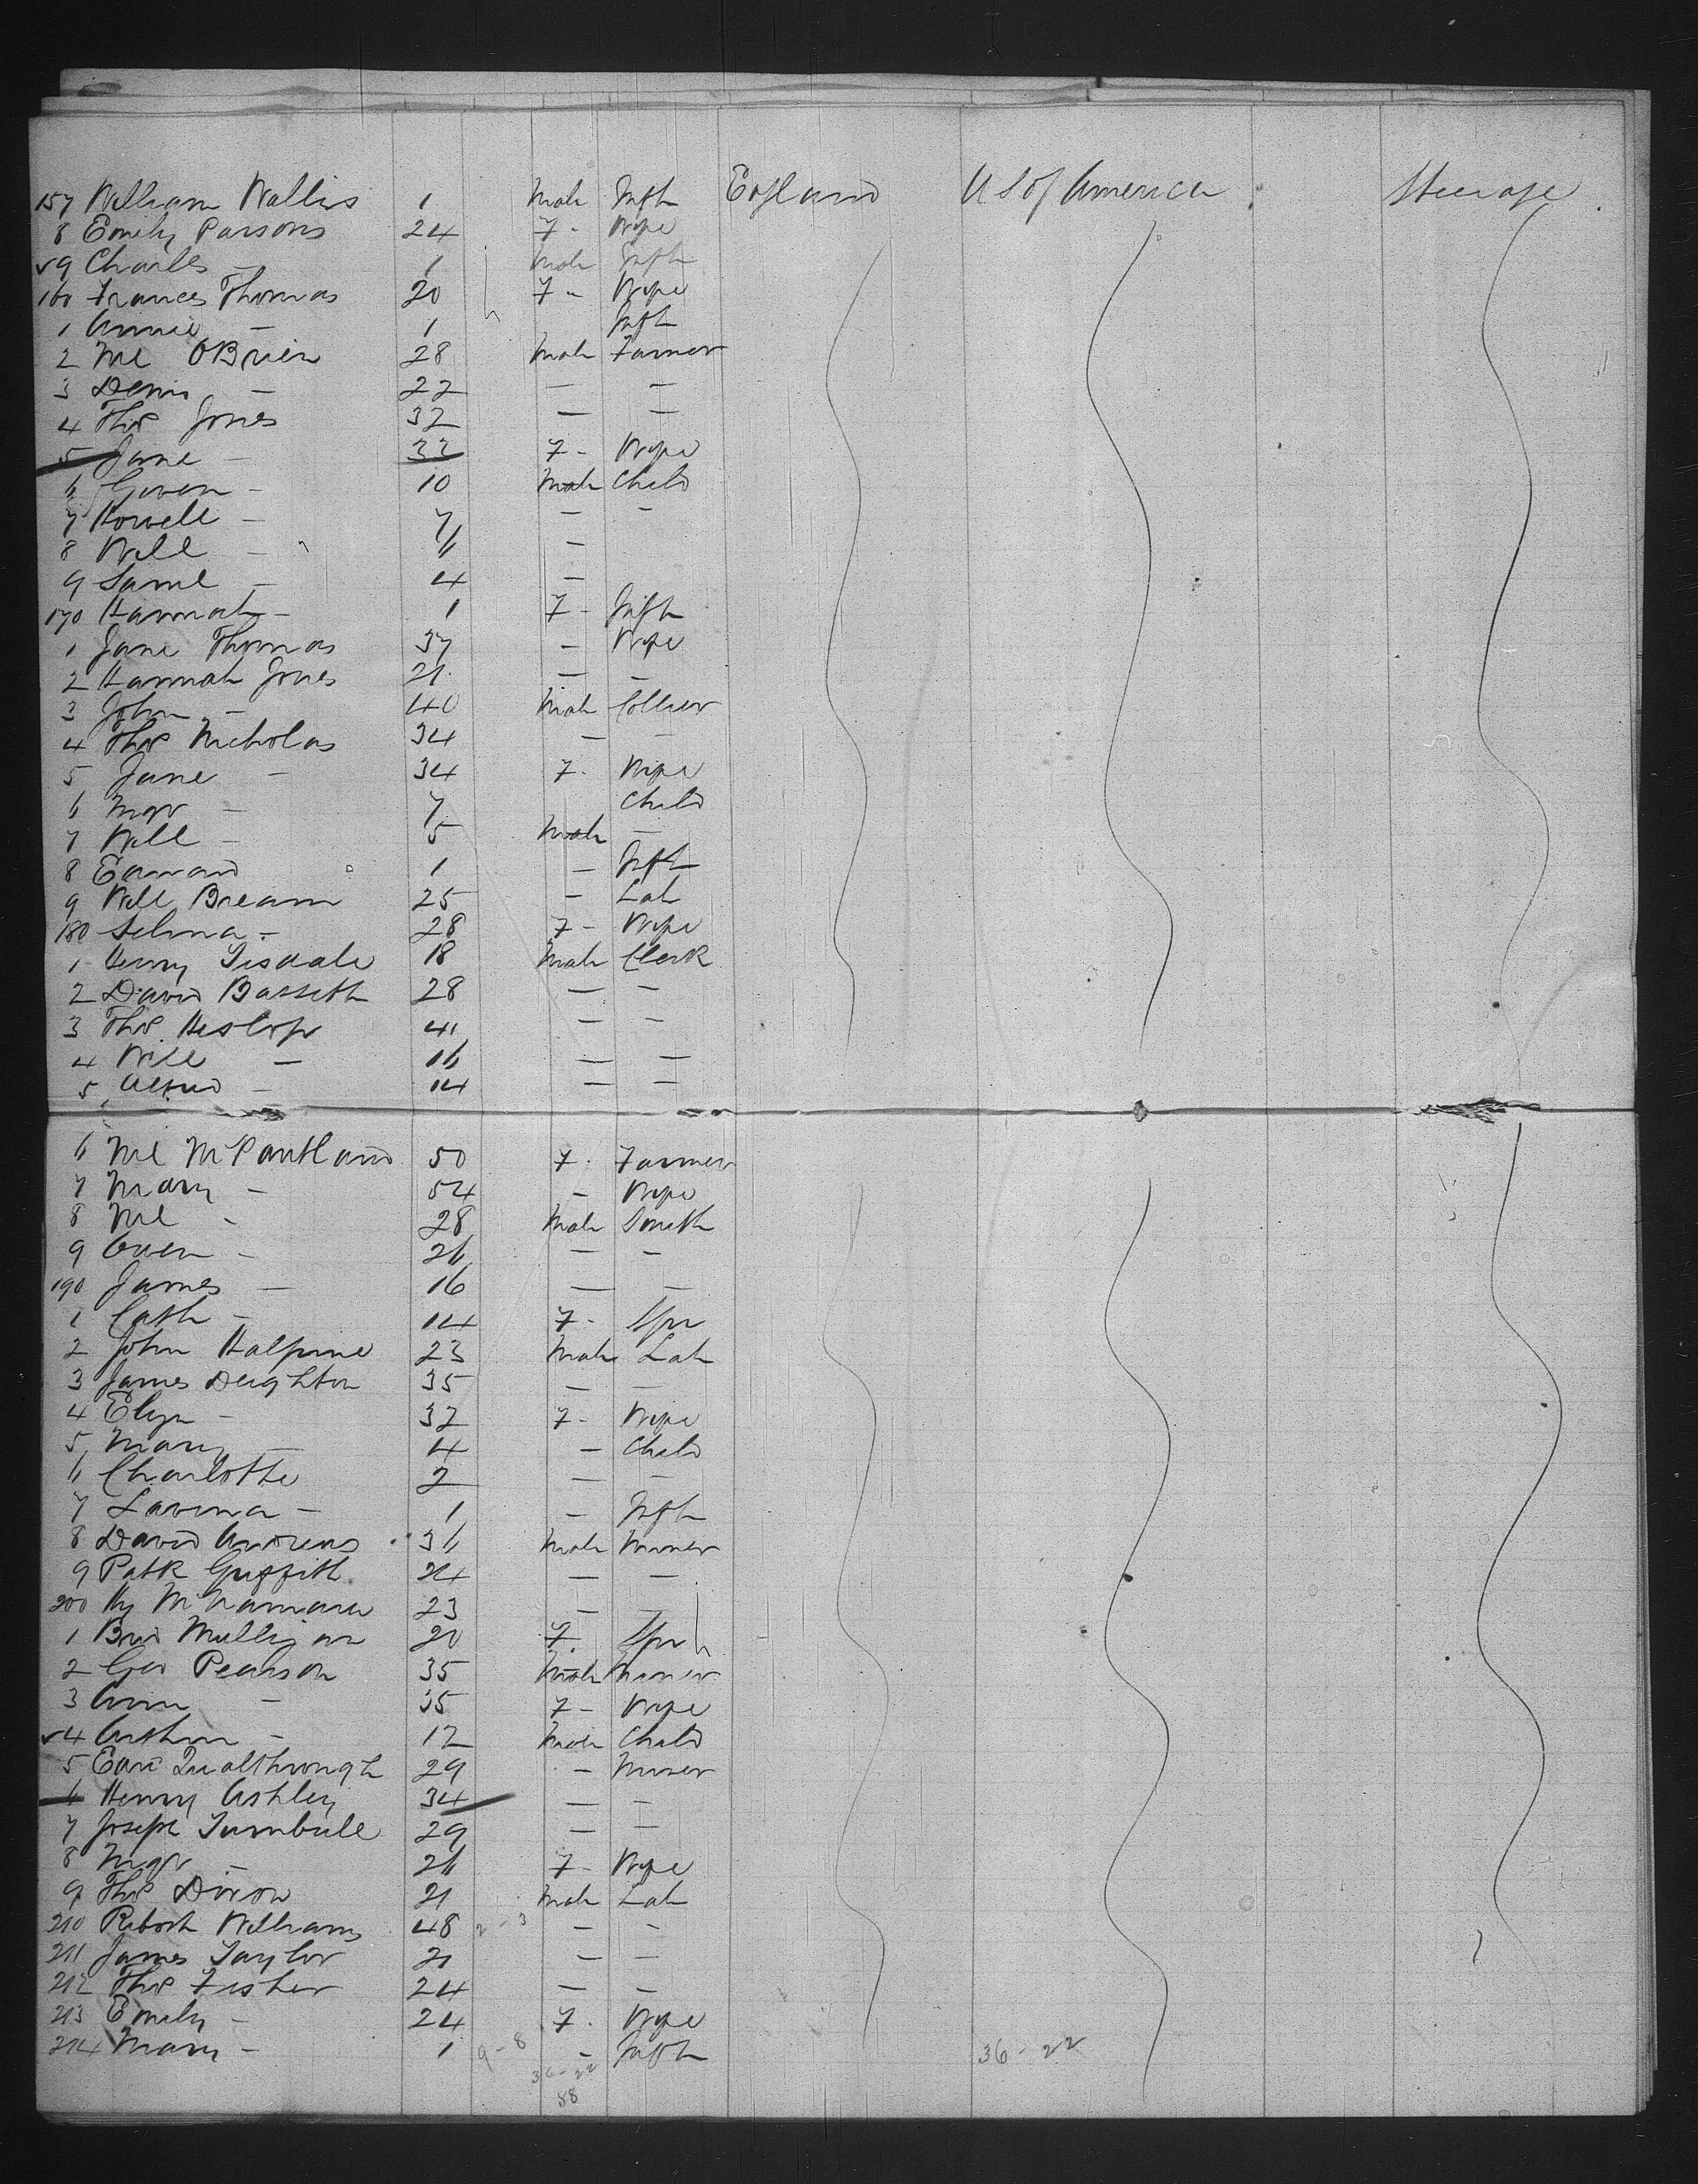 157 William Wallis 1 Male Inft England U S of America Steerage
8 Emily Parsons 24 F - Wife
9 Charles - 1 Male Inft
160 Frances Thomas 20 F - Wife
1 Annie - 1 Inft
2 Ml OBrien 28 Male Farmer
3 Denis - 22 — —
4 Thos Jones 32 — —
5 Jane - 32 F - Wife
6 Gwen - 10 Male Child
7 Howell - 7 — -
8 Will - 6 —
9 Saml - 4 —
170 Hannah - 1 F - Inft
1 Jane Thomas 37 - Wife
2 Hannah Jones 21 — —
3 John - 40 Male Collier
4 Thos Nicholas 34 — —
5 Jane - 34 F - Wife
6 Mgt - 7 Child
7 Will - 5 Male —
8 Edward 1 — Inft
9 Will Bream 25 - Lab
180 Selina - 28 F - Wife
1 Henry Tisdale 18 Male Clerk
2 David Bassett 28 — —
3 Thos Heslop 41 — —
4 Will - 16 — —
5 Alfred - 14 — —
6 Ml McPartland 50 F - Farmer
7 Mary - 54 - Wife
8 Ml - 28 Male Smith
9 Owen - 26 — —
190 James - 16 — —
1 Cath - 14 F - Spr
2 John Halpine 23 Male Lab
3 James Deighton 35 — —
4 Eliza - 32 F - Wife
5 Mary - 4 - Child
6 Charlotte 2 — —
7 Lavina - 1 - Inft
8 David Andrews 36 Male Miner
9 Patk Griffith 24 — —
200 Hy McNamara 23 — —
1 Brid Mulligan 20 F Spr
2 Geo Pearson 35 Male Miner
3 Ann - 35 F - Wife
4 Arthur - 12 Male Child
5 Edwd Qualthrough 29 - Miner
6 Henry Ashley 34 — —
7 Joseph Turnbull 29 — —
8 Mgt - 26 F - Wife
9 Thos Dixon 21 Male Lab
210 Robert Williams 48 2 - 3 - -
211 James Taylor 21 — —
212 Thos Fisher 24 — —
213 Emily - 24 F - Wife
214 Mary - 1 9 - 8 - Inft 36 - 22
36 - 22
58